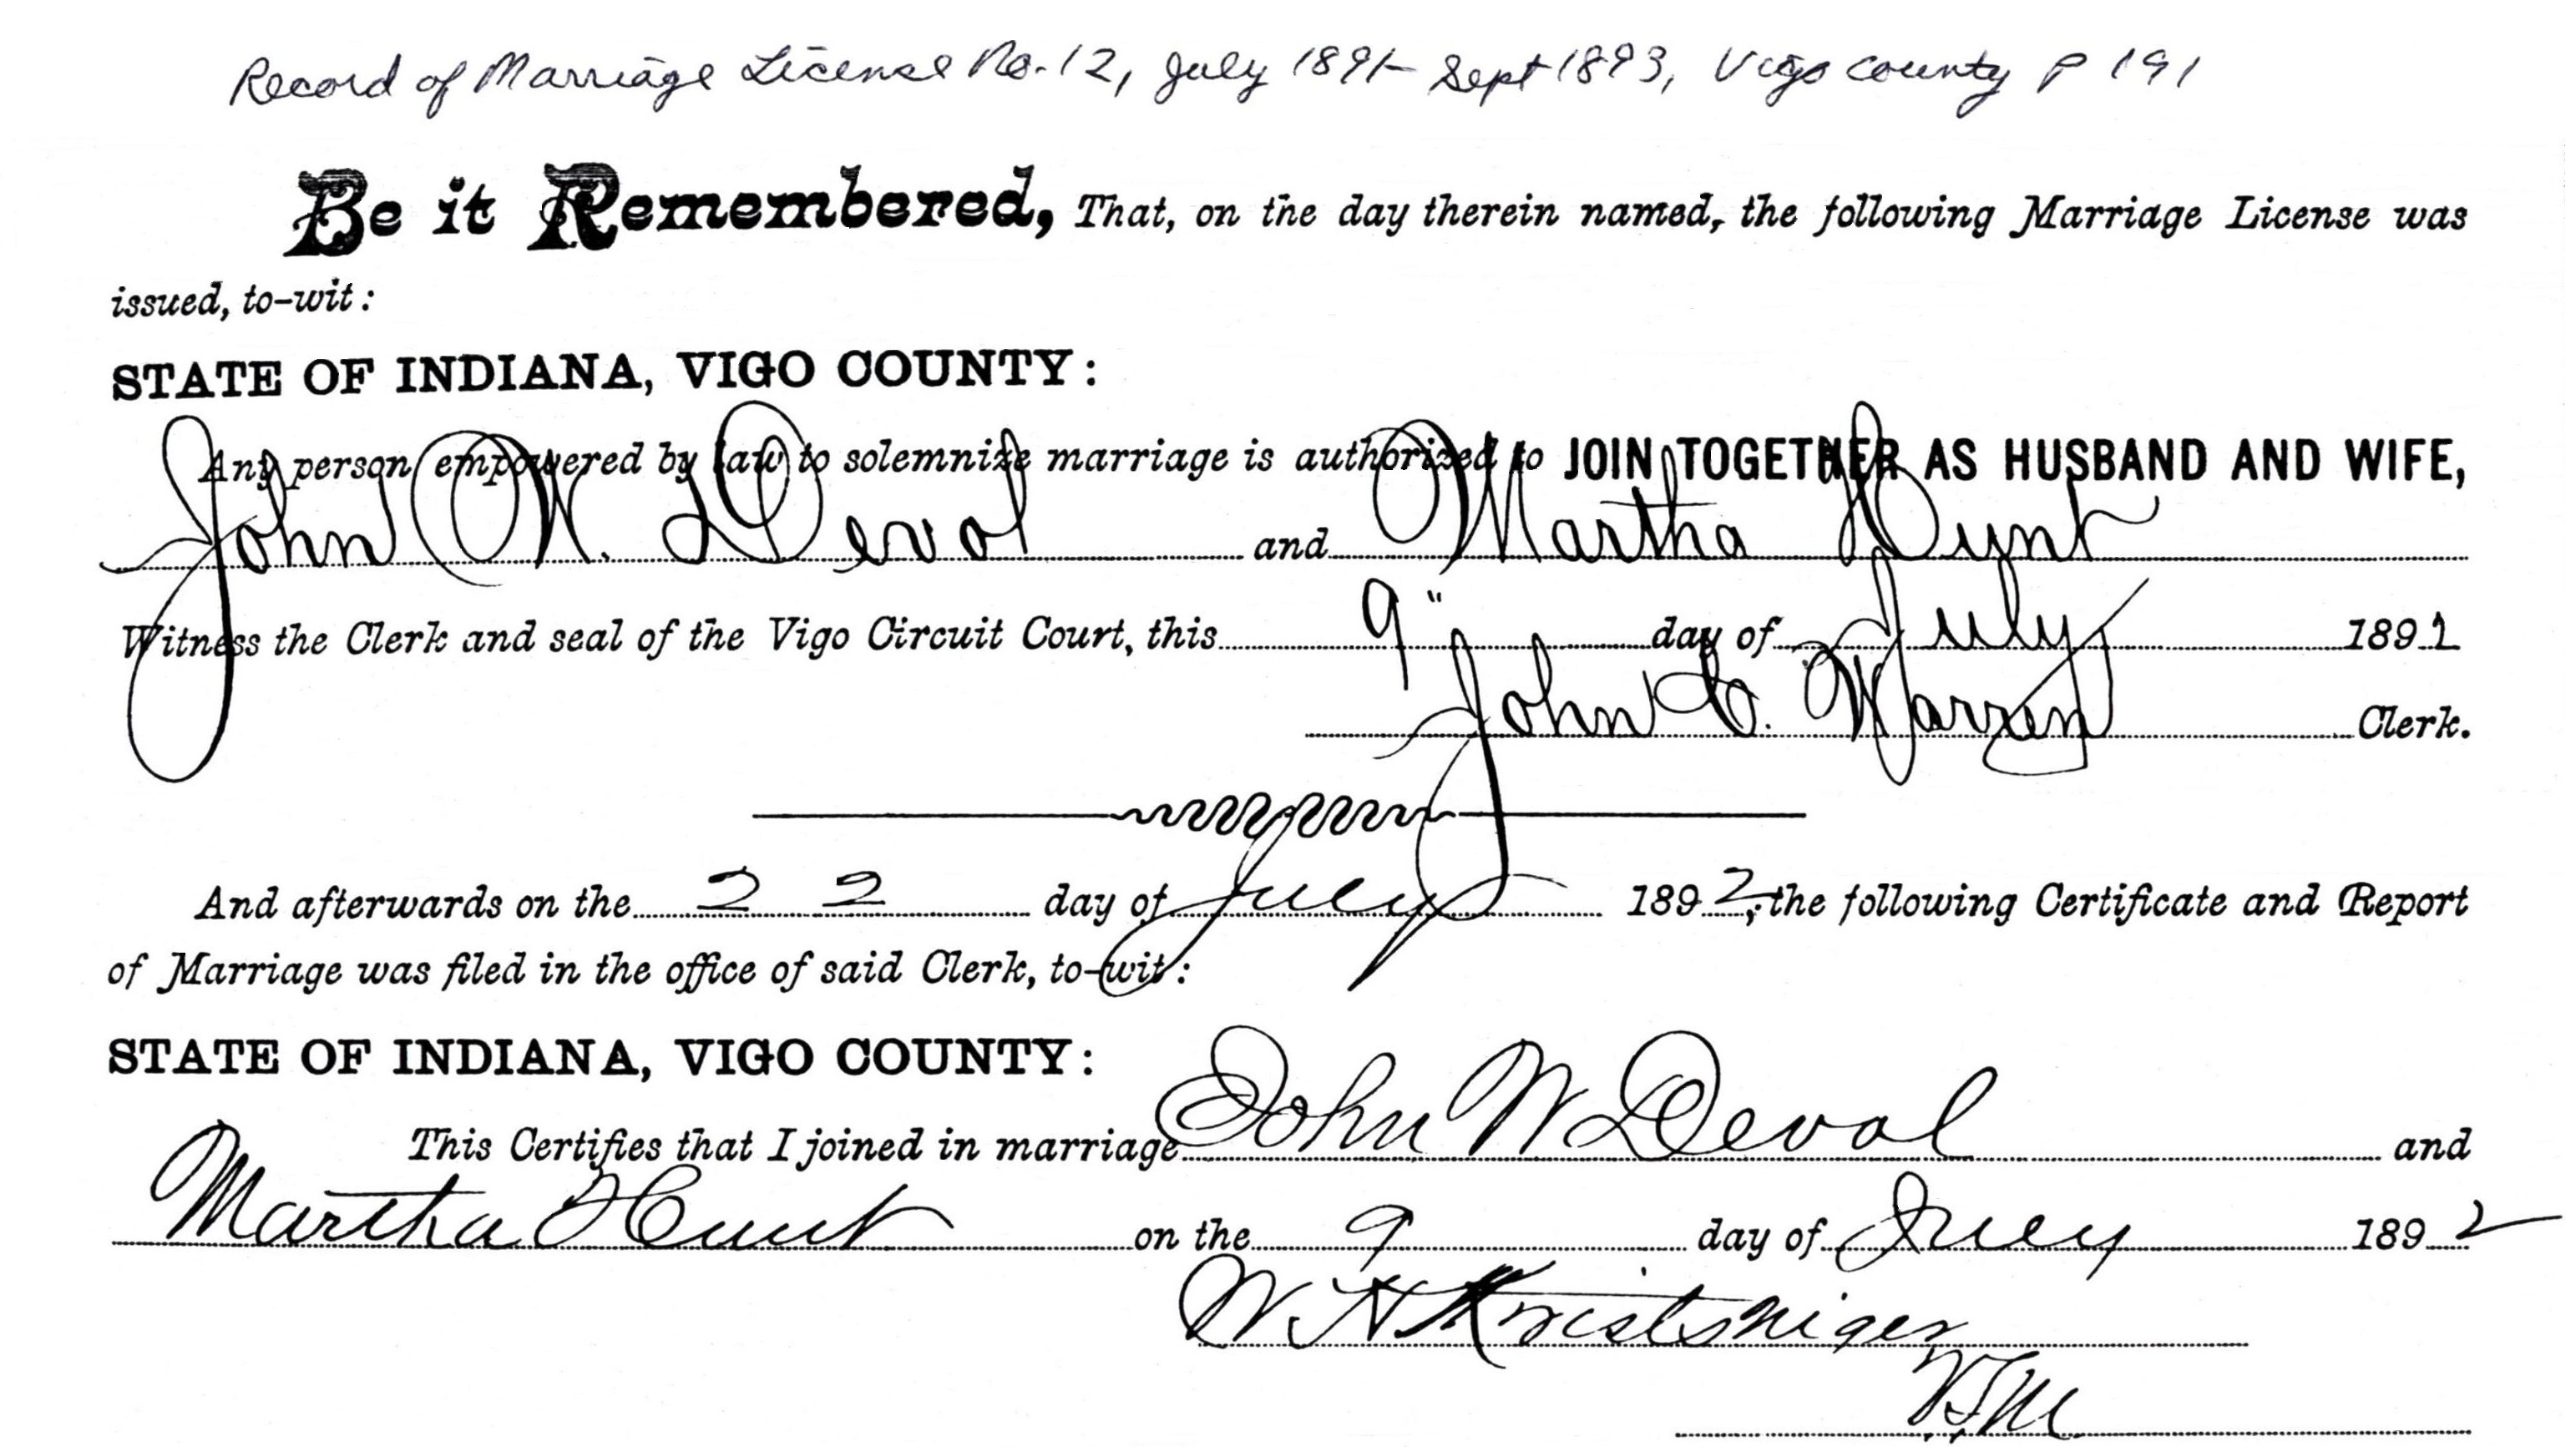 Record of Marriage License No. 12, July 1891- Sept 1893, Vigo County p 191
Be it Remembered, That, on the day therein named, the following Marriage License was
issued, to-wit:
STATE OF INDIANA, VIGO COUNTY:
Any person empowered by law to solemnize marriage is authorized to JOIN TOGETHER AS HUSBAND AND WIFE,
John W. Devol and Martha Hunt
Witness the Clerk and seal of the Vigo Circuit Court, this 9" day of July 1892
John C. Warren Clerk.
And afterwards on the 22 day of July 1892, the following Certificate and Report
of Marriage was filed in the office of said Clerk, to-wit:
STATE OF INDIANA, VIGO COUNTY:
This Certifies that I joined in marriage John W Devol and
Martha Hunt on the 9 day of July 1892
W. H.